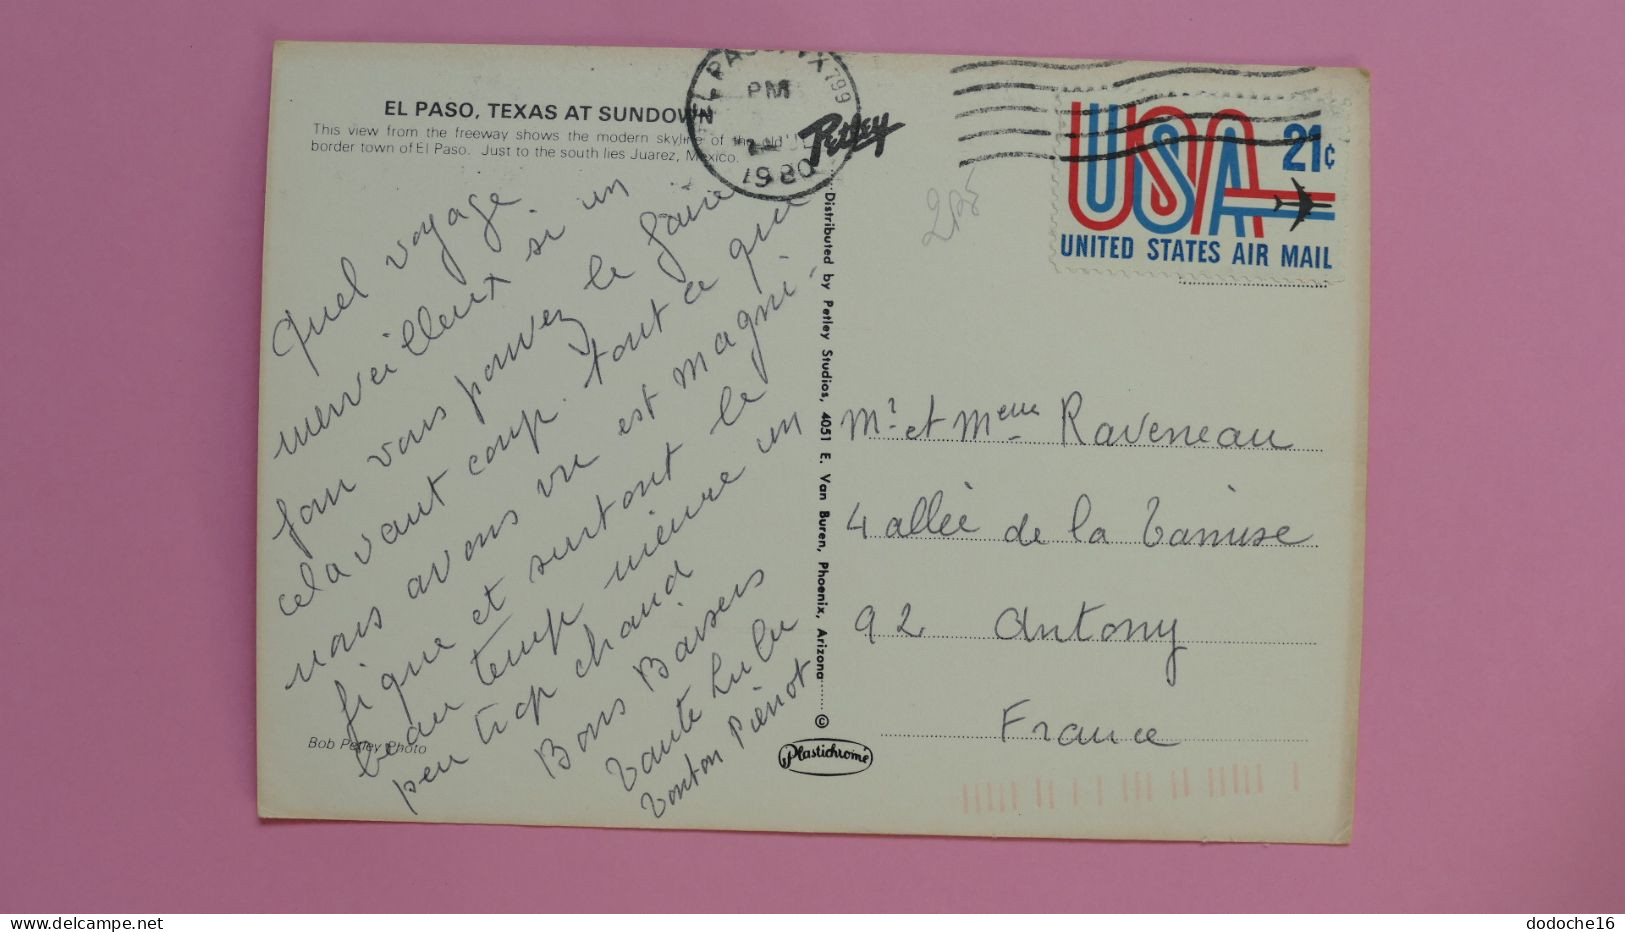 EL PASO, TEXAS AT SUNDOWN
This view from the freeway shows the modern skyline of the old
border town of El Paso. Just to the south lies Juarez, Mexico.
EL PASO, TX 799
PM
1980
Petley
21¢
USA
UNITED STATES AIR MAIL
Quel voyage
merveilleux si un
jour vous pouvez le faire
cela vaut coup. tout ce que
nous avons vu est magni
fique et surtout le
beau temp mieme un
peu trop chaud
Bons Baisers
tante Lulu
tonton Pierrot
Bob Petley Photo
Distributed by Petley Studios, 4051 E. Van Buren, Phoenix, Arizona
©
Plastichrome
Mr et Meme Raveneau
4 allée de la Tamise
92 Antony
France
delcampe.net
dodoche16